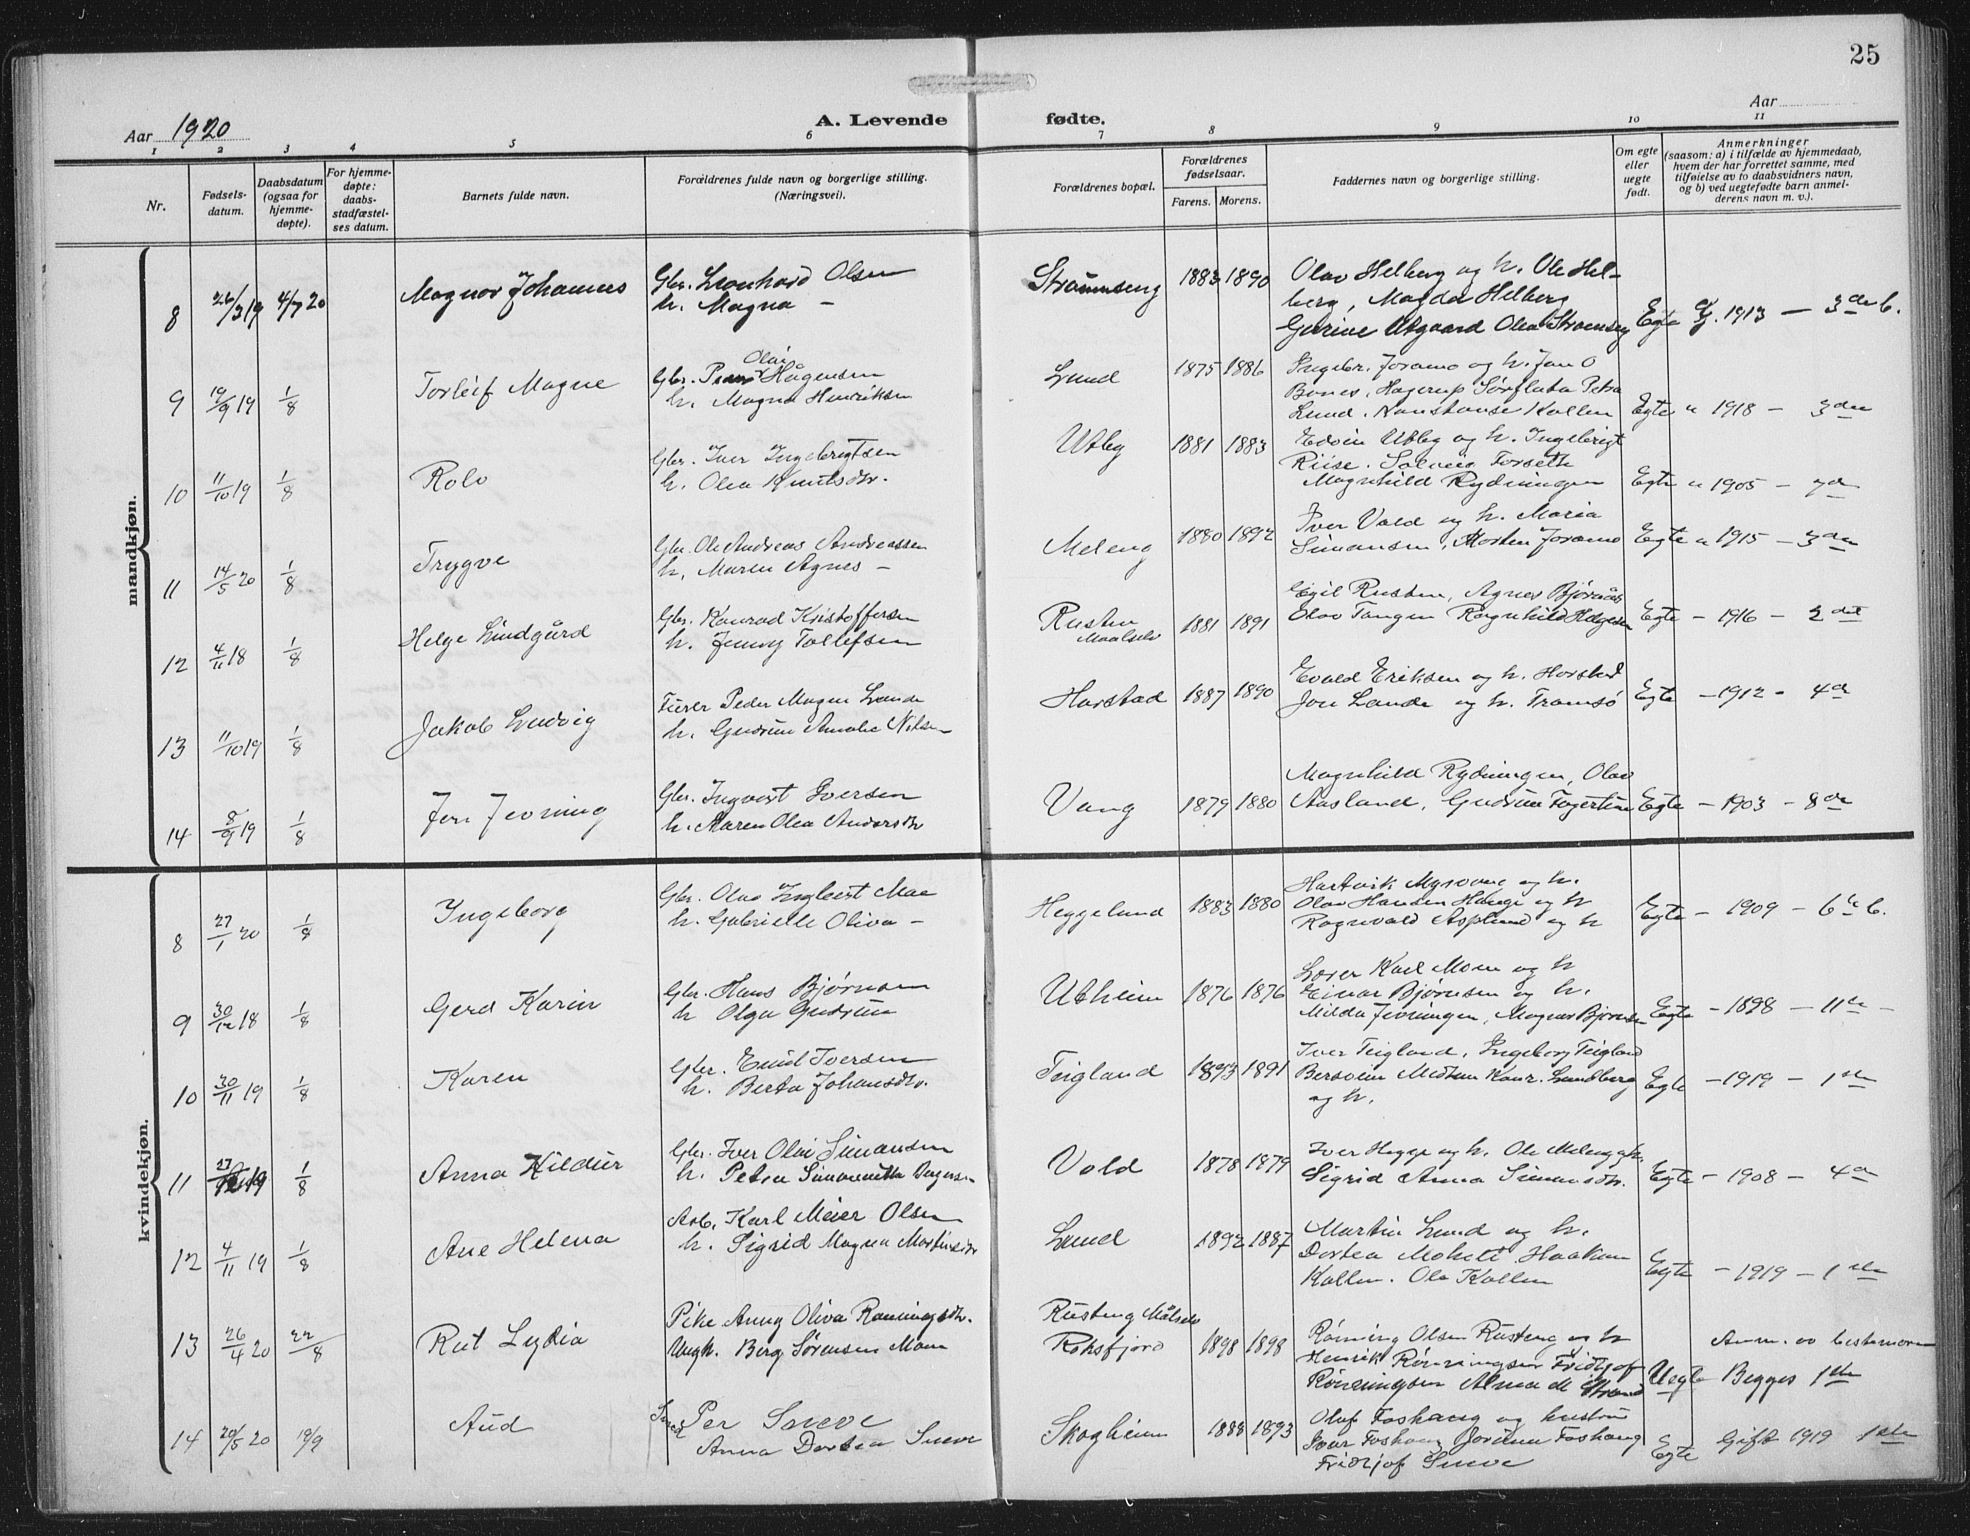 25
Aar 1920
A. Levende fødte.
Aar
1 2 3 4 5 6 7 8 9 10 11
Nr.
Fødsels-
datum.
Daabsdatum
(ogsaa for
hjemme-
døpte).
For hjemme-
døpte:
daabs-
stadfæstel-
ses datum.
Barnets fulde navn.
Forældrenes fulde navn og borgerlige stilling.
(Næringsvei).
Forældrenes bopæl.
Forældrenes
fødselsaar.
Farens. Morens.
Faddernes navn og borgerlige stilling.
Om egte
eller
uegte
født.
Anmerkninger
(saasom: a) i tilfælde av hjemmedaab,
hvem der har forrettet samme, med
tilføielse av to daabsvidners navn,
og b) ved uegtefødte barn anmel-
derens navn m. v.).
mandkjøn.
8 26/3 19 4/7 20 Magnor Johannes
Gbr. Leonhard Olsen
h. Magna –
Strømseng 1883 1890
Olav Helberg og h. Ole Hel-
berg, Magda Helberg
Gurine Utgaard Olea Strømseng
Egte G. 1913 — 3de b.
9 19/9 19 1/8 Torleif Magne
Gbr. Peder Olai Hågensen
h. Magna Henriksen
Lund 1875 1886
Ingebr. Joramo og h. Jan O
Bones, Hagerup Sørflata Petra
Lund. Konstanse Kollen
Egte " 1918 – 3die
10 11/10 19 1/8 Rolv
Gbr. Iver Ingebrigtsen
h. Olea Knutsdtr.
Utby 1881 1883
Edvin Utby og h. Ingebrigt
Riise. Solveig Forseth
Magnhild Rydningen
Egte " 1905 – 7de
11 14/5 20 1/8 Trygve
Gbr. Ole Andreas Andreassen
h. Maren Agnes –
Meleng 1880 1892
Iver Vold og h. Maria
Simonsen, Morten Joramo
Egte " 1915 – 3die
12 4/11 18 1/8 Helge Lindgård
Gbr. Konrad Kristoffersen
h. Jenny Tollefsen
Rusten
Maalselv
1881 1891
Egil Rusten, Agnes Bjørnås
Olav Tangen Ragnhild Hagesen
Egte – 1916 – 2det
13 11/10 19 1/8 Jakob Ludvig
Furer Peder Magnus Lande
h. Gudrun Amalie Nilsen
Harstad 1887 1890
Evald Eriksen og h. Harstad
Jon Lande og h. Tromsø
Egte – 1912 – 4de
14 8/9 19 1/8 Jon Jevning
Gbr. Ingvart Iversen
h. Maren Olea Andersdtr
Vang 1879 1880
Magnhild Rydningen, Olav
Aasland, Gudrun Fagerlien
Egte – 1903 – 8de
kvindekjøn.
8 27/1 20 1/8 Ingeborg
Gbr. Olav Inglbert Moe
h. Gabrielle Oliva –
Heggelund 1883 1880
Hartvik Mysvang og h.
Olav Hansen Hauge og h
Ragnvald Asplund og h
Egte – 1909 – 6te b.
9 30/12 18 1/8 Gerd Karin
Gbr. Hans Bjørnsen
h Olga Gudrun
Utheim 1876 1876
Lærer Karl Moen og h
Einar Bjørnsen og h.
Milda Jevningen, Magnus Bjørnsen
Egte – 1898 – 11te –
10 30/11 19 1/8 Karen
Gbr. Emil Iversen
h. Berta Johansdtr.
Teigland 1893 1891
Iver Teigland, Ingeborg Teigland
Bersvein Medtun Konr. Lundberg
og h.
Egte – 1919 – 1ste
11 27/12 19 1/8 Anna Hildur
Gbr. Iver Olai Simonsen
h. Petra
Vold 1878 1879
Iver Hegge og h. Ole Meleng og h.
Sigrid Anna Simonsdtr.
Egte – 1908 – 4de
12 4/11 19 1/8 Ane Helena
Arb. Karl Meier Olsen
h. Sigrid Magna Martinsdtr
Lund 1892 1887
Martin Lund og h.
Dortea Moholt Haakon
Kollen. Ole Kollen
Egte – 1919 – 1ste
13 26/4 20 22/8 Rut Lydia
Pike Anny Oliva Rønningsdtr.
Ungk. Berg Sørensen Moen
Rusteng Målselv
Roksfjord
1898 1898
Rønning Olsen Rusteng og h
Henrik Rønningsen Fridtjof
Rønningsen Alma de Strand
Uegte
Anm. av bestemoren
Begges 1ste
14 20/5 20 19/9 Aud
Smed Per Sneve
Anna Dortea Sneve
Skogheim 1888 1893
Oluf Foshaug og hustru
Ivar Foshaug Jordun Foshaug
Fridtjof Sneve
Egte Gift 1919 1ste